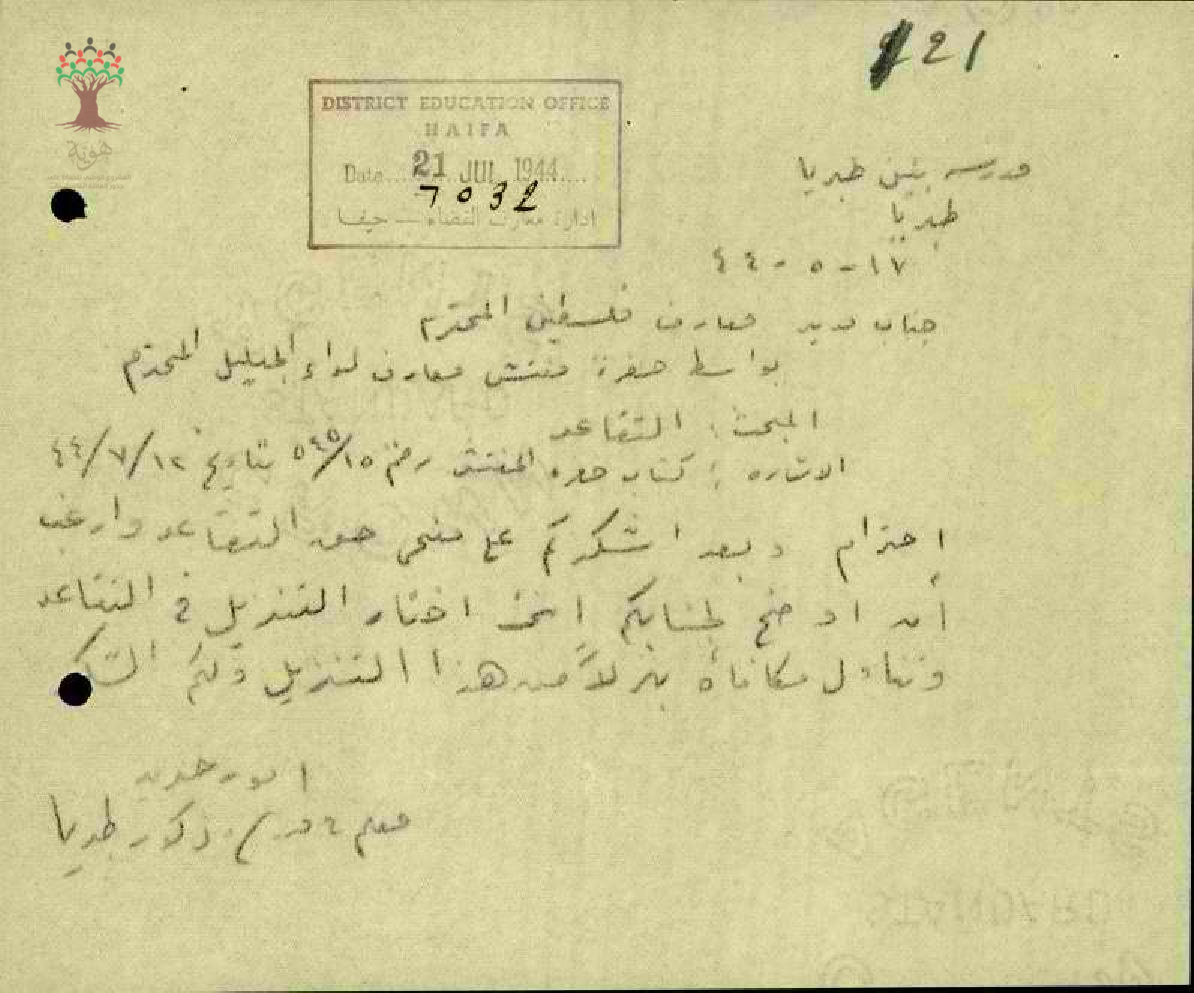 221
هوية
DISTRICT EDUCATION OFFICE
HAIFA
Date 21 JUL 1944
7032
ادارة معارف القضاء — حيفا
مدرسة بنين طبريا
طبريا
١٧ - ٥ - ٤٤
جناب مدير معارف فلسطين المحترم
بواسطة حضرة مفتش معارف لواء الجليل المحترم
المبحث : التقاعد
الاشارة : كتاب حضرة المفتش رقم ١٥/٥٤٥ بتاريخ ٤٤/٧/١٢
إحترام وبعد اشكركم على منحي حق التقاعد وارغب
أن اوضح لجنابكم إنني اختار التنزيل في التقاعد
وتناول مكافأة بدلاً من هذا التنزيل ولكم الشكر
معلم ذكور طبريا